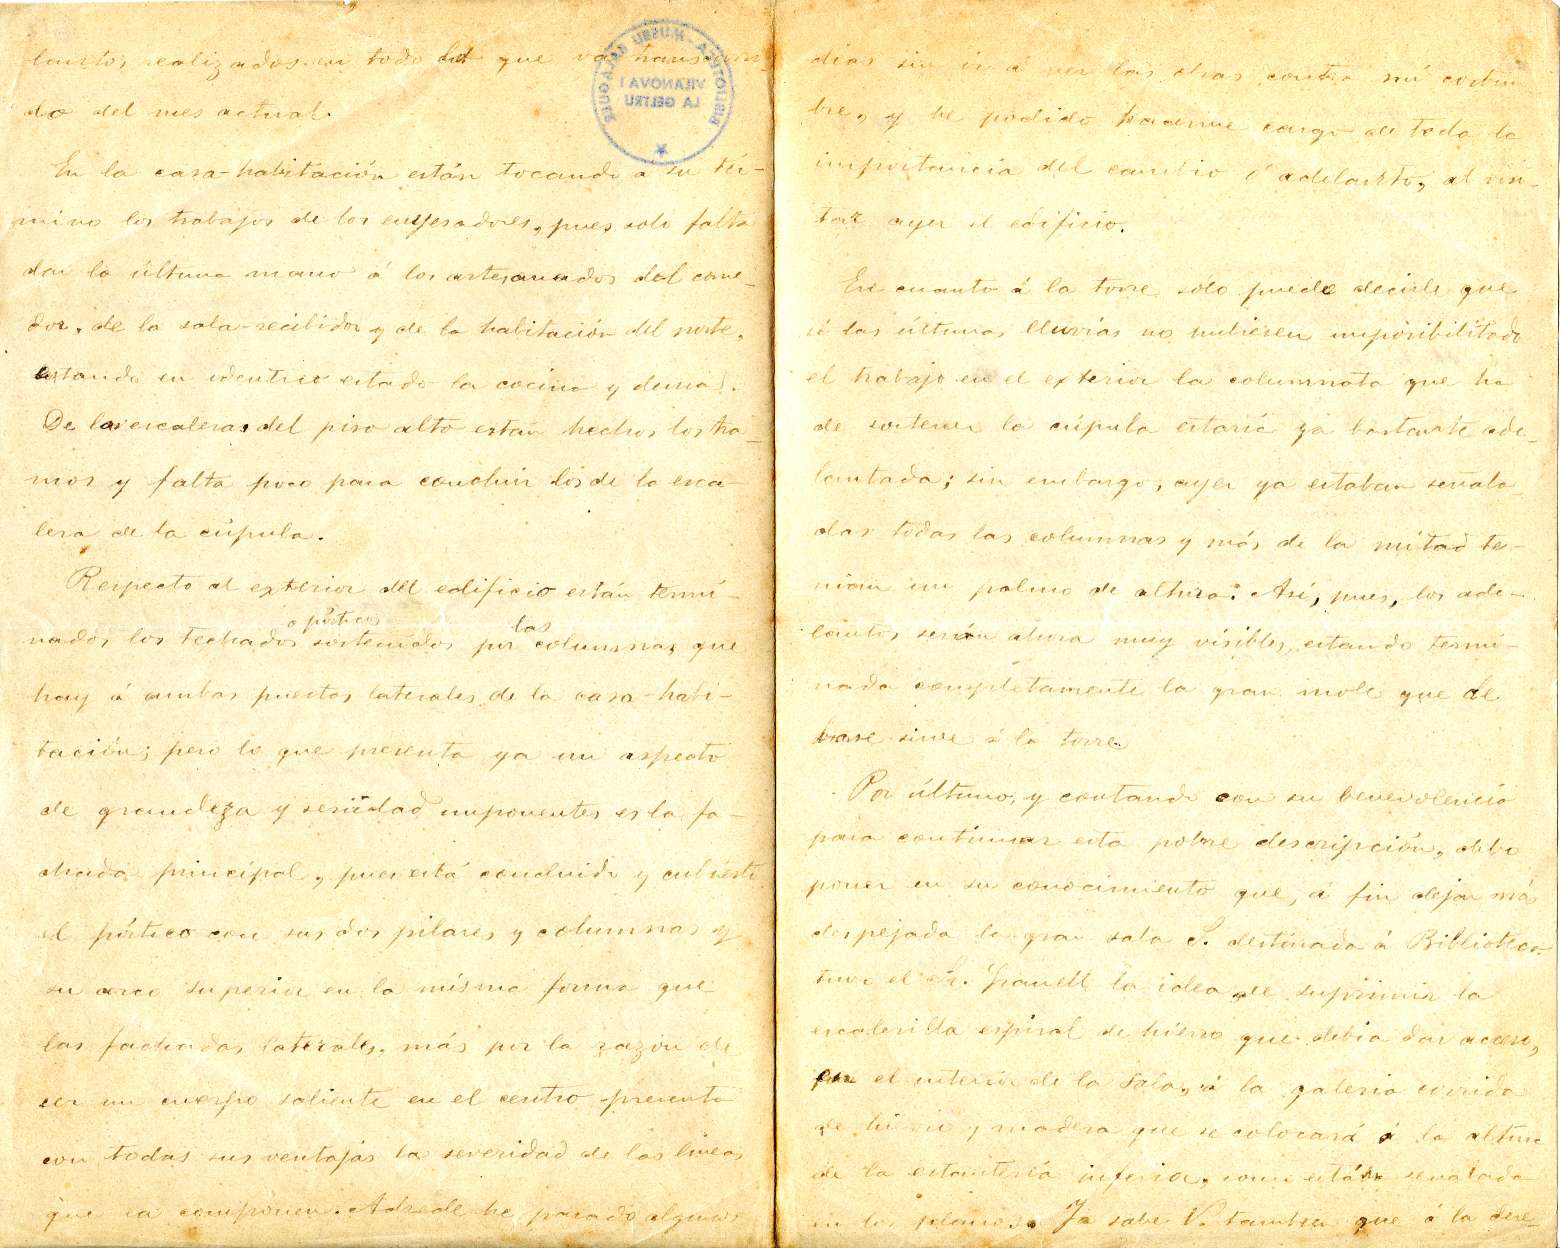 lantos realizados en todo lo que va transcurri-
do del mes actual.
En la casa-habitación están tocando a su tér-
mino los trabajos de los enyesadores, pues solo falta
dar la última mano á los artesonados del come-
dor, de la sala-recibidor y de la habitación del norte,
estando en identico estado la cocina y demas.
De las escaleras del piso alto están hechos los tra-
mos y falta poco para concluir los de la esca-
lera de la cúpula.
Respecto al exterior del edificio están termi-
o pórticos las
nados los techados sostenidos por columnas que
hay á ambas puertas laterales de la casa-habi-
tación; pero lo que presenta ya un aspecto
de grandeza y seriedad imponentes es la fa-
chada principal, pues está concluido y cubierto
el pórtico con sus dos pilares y columnas y
su arco superior en la misma forma que
las fachadas laterales, más por la razón de
ser un cuerpo saliente en el centro presenta
con todas sus ventajas la severidad de las lineas
que la componen. Adrede he pasado algunos
dias sin ir á ver las obras contra mi costum-
bre, y he podido hacerme cargo de toda la
importancia del cambio ó adelanto, al visi-
tar ayer el edificio.
En cuanto á la torre solo puedo decirle que
si las últimas lluvias no hubiesen imposibilitado
el trabajo en el exterior la columnata que ha
de sostener la cúpula estaria ya bastante ade-
lantada; sin embargo, ayer ya estaban señala-
das todas las columnas y más de la mitad te-
nian un palmo de altura. Así, pues, los ade-
lantos serán ahora muy visibles, estando termi-
nada completamente la gran mole que de
base sirve á la torre.
Por último, y contando con su benevolencia
para continuar esta pobre descripción, debo
poner en su conocimiento que, á fin dejar más
despejada la gran sala S. destinada á Biblioteca
tuvo el Sr. Granell la idea de suprimir la
escalerilla espiral de hierro que debia dar acceso,
por el interior de la Sala, á la galeria corrida
de hierro y madera que se colocará á la altura
de la estanteria inferior, como está señalada
en los planos. Ya sabe V. tambien que á la dere-
BIBLIOTECA - MUSEU BALAGUER
VILANOVA I
LA GELTRÚ